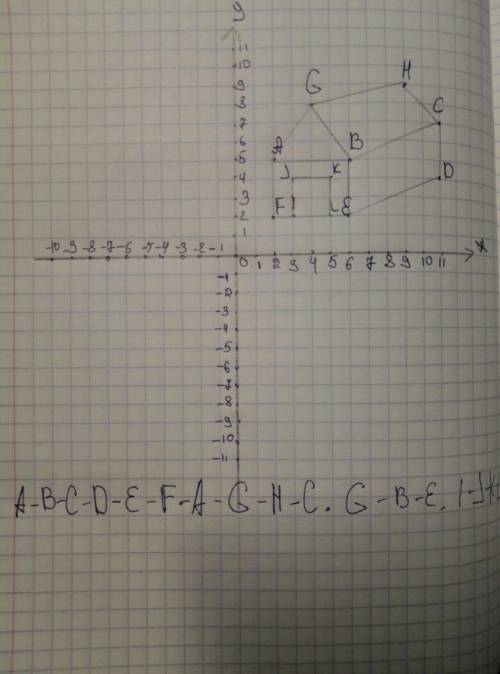 y
11
10
9
8
7
6
5
4
3
2
1
H
G
C
A
B
J
K
D
F
I
L
E
-10 -9 -8 -7 -6 -5 -4 -3 -2 -1
0 1 2 3 4 5 6 7 8 9 10 11
x
-1
-2
-3
-4
-5
-6
-7
-8
-9
-10
-11
A-B-C-D-E-F-A-G-H-C. G-B-E. I-J-